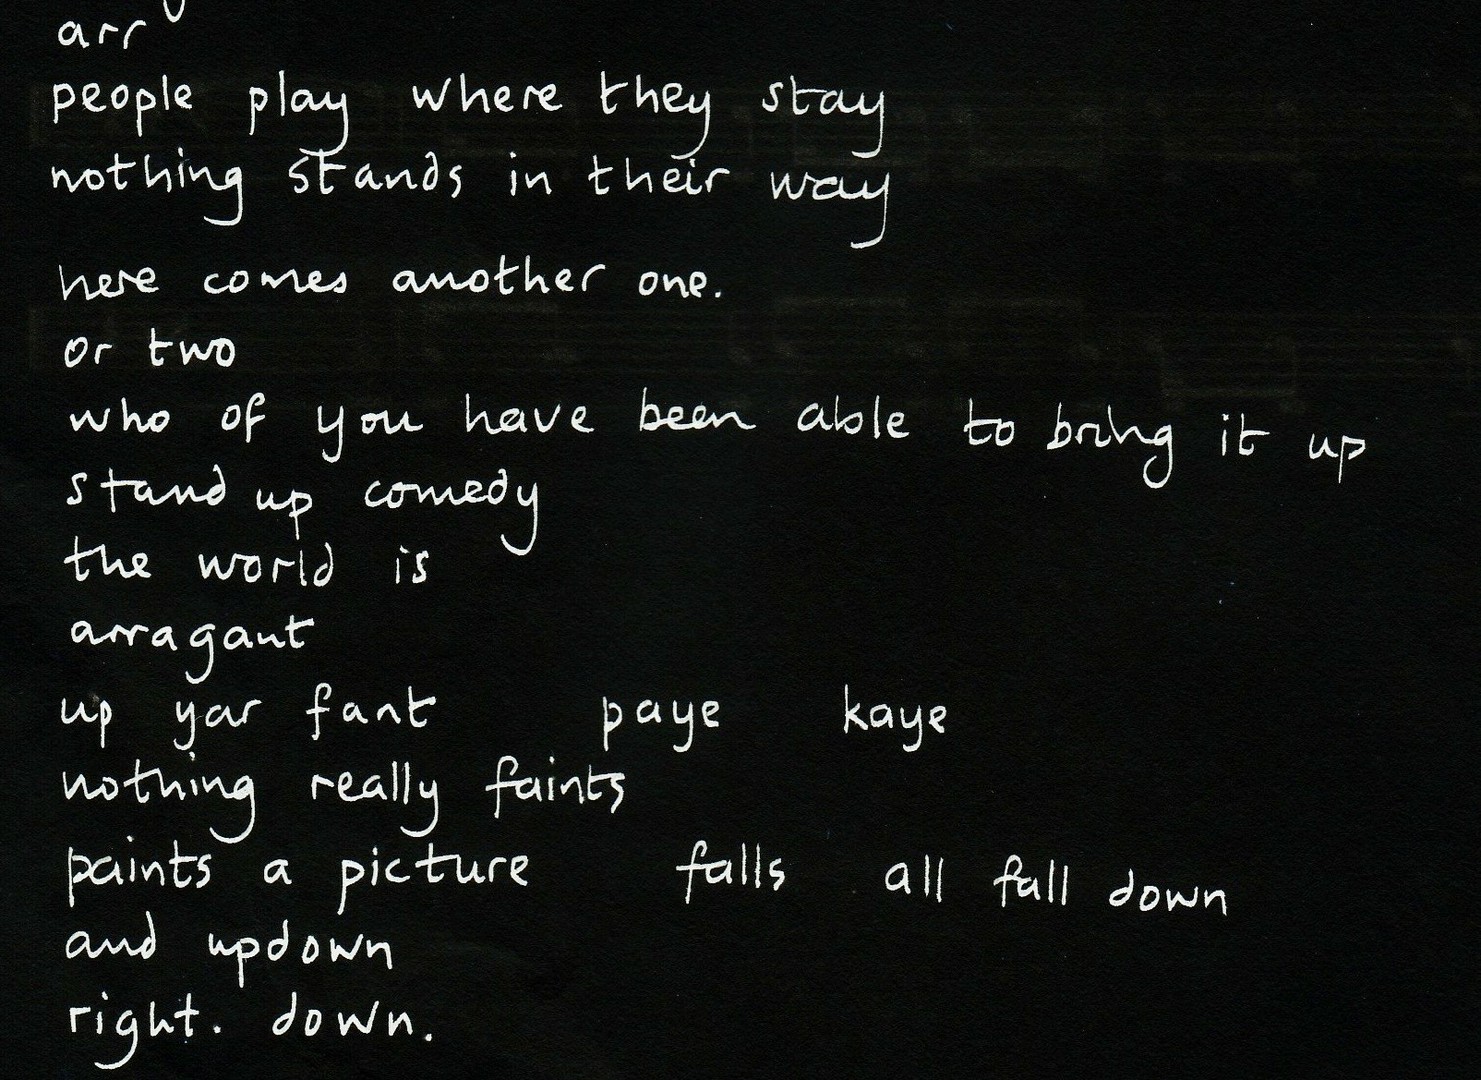 arr
people play where they stay
nothing stands in their way
here comes another one.
or two
who of you have been able to bring it up
stand up comedy
the world is
arragant
up yar fant paye kaye
nothing really faints
paints a picture falls all fall down
and updown
right. down.